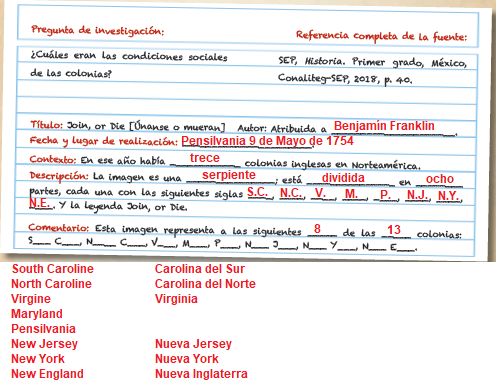 Pregunta de investigación: Referencia completa de la fuente:
¿Cuáles eran las condiciones sociales SEP, Historia. Primer grado, México,
de las colonias? Conaliteg-SEP, 2018, p. 40.
Título: Join, or Die [Únanse o mueran] Autor: Atribuida a Benjamín Franklin.
Fecha y lugar de realización: Pensilvania 9 de Mayo de 1754
Contexto: En ese año había trece colonias inglesas en Norteamérica.
Descripción: La imagen es una serpiente; está dividida en ocho
partes, cada una con las siguientes siglas S.C., N.C., V., M., P., N.J., N.Y.,
N.E.. Y la leyenda Join, or Die.
Comentario: Esta imagen representa a las siguientes 8 de las 13 colonias:
S___ C___, N___ C___, V___, M___, P___, N___ J___, N___ Y___, N___ E___.
South Caroline Carolina del Sur
North Caroline Carolina del Norte
Virgine Virginia
Maryland
Pensilvania
New Jersey Nueva Jersey
New York Nueva York
New England Nueva Inglaterra